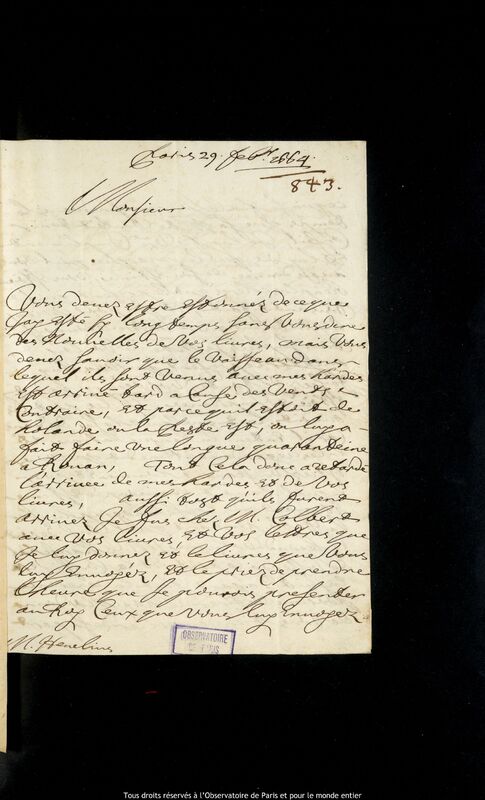 Paris 29. feb.r 1664.
843.
Monsieur
Vous devez estre estonnéz de ce que
j'ay esté sy longtemps sans Vous dire
des Nouvelles de Vos livres, mais Vous
devez savoir que le Vaisseau dans
lequel ils sont Venus avec mes hardes
est arrivé tard a cause des Vents
Contraire, Et parce quil estoit de
holande ou la Peste est, on luy a
fait faire Une longue quarenteine
a Rouan, Tout Cela donc a retardé
l'arrivee de mes hardes Et de Vos
livres, aussi tost quils furent
arrivez Je fus chez M. Colbert
avec Vos livres, Et Vos lettres que
Je luy donnez Et le livres que Vous
luy Envoyéz, Et le priez de prendre
l'heure que Je pourois presenter
au Roy Ceux que Vous luy Envoyez
M. Hevelius
OBSERVATOIRE
DE PARIS
Tous droits réservés à l'Observatoire de Paris et pour le monde entier